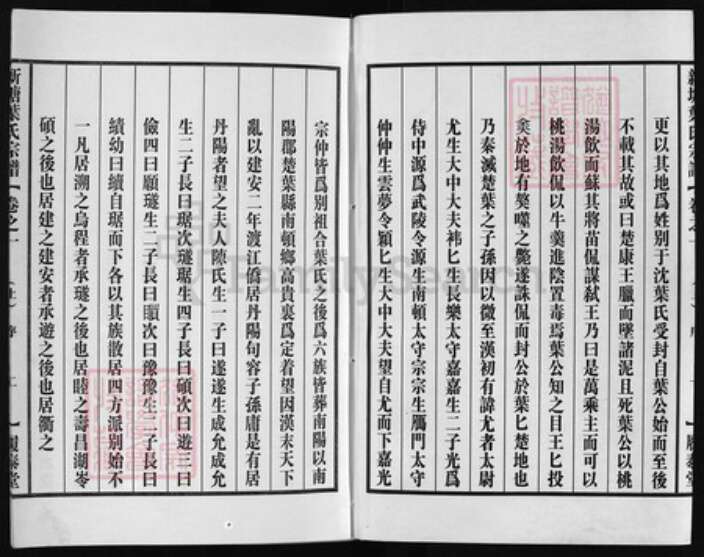 更以其地爲姓别于沈葉氏受封自葉公始而至後
不載其故或曰楚康王臘而墜諸泥且死葉公以桃
湯飲而蘇其將苗侃謀弒王乃曰是萬乘主而可以
桃湯飲侃以牛羮進陰置毒焉葉公知之目王匕投
矣於地有獒噬之斃遂誅侃而封公於葉匕楚地也
乃秦滅楚葉之子孫因以微至漢初有諱尤者太尉
尤生大中大夫祎匕生長樂太守嘉嘉生二子光爲
侍中源爲武陵令源生南頓太守宗宗生鴈門太守
仲仲生雲夢令穎匕生大中大夫望自尤而下嘉光
宗仲皆爲别祖合葉氏之後爲六族皆葬南陽以南
陽郡楚葉縣南頓鄉高貴裏爲定着望因漢末天下
亂以建安二年渡江僑居丹陽句容子孫庸是有居
丹陽者望之夫人陳氏生一子曰遂遂生成允成允
生二子長曰琚次曰璲琚生四子長曰碩次曰遊三曰
儉四曰願璲生二子長曰顗次曰豫豫生二子長曰
績幼曰續自琚而下各以其族散居四方派别始不
一凡居溯之烏程者承璲之後也居睦之壽昌湖岑
碩之後也居建之建安者承遊之後也居衢之
新塘葉氏宗譜 卷之一
履泰堂